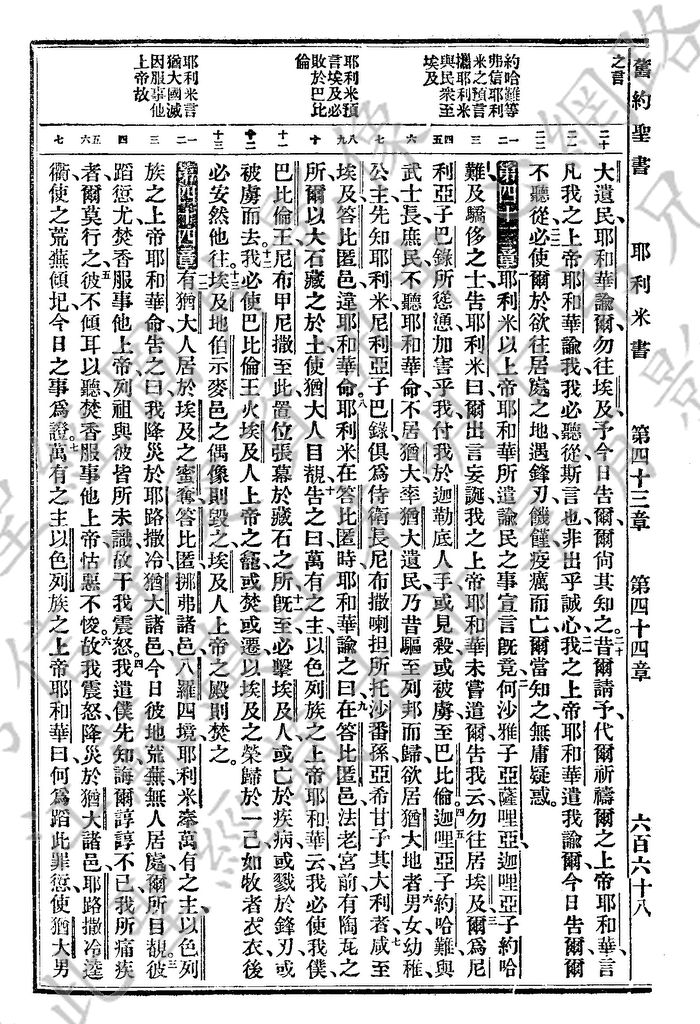 舊約聖書 耶利米書 第四十三章 第四十四章 六百六十八
之言
約哈難等
弗信耶利
米之預言
攜耶利米
與民衆至
埃及
耶利米預
言埃及必
敗於巴比
倫
耶利米言
猶大國滅
因服事他
上帝故
二十 大遺民耶和華諭爾勿往埃及予今日告爾爾尙其知之二十昔爾請予代爾祈禱爾之上帝耶和華言
二一 凡我之上帝耶和華諭我我必聽從斯言也非出乎誠心二一我之上帝耶和華遣我諭爾今日告爾爾
二二 不聽從必使爾於欲往居處之地遇鋒刃饑饉疫癘而亡爾當知之無庸疑惑
一二 第四十三章 耶利米以上帝耶和華所遣諭民之事宣言旣竟二何沙雅子亞薩哩亞迦哩亞子約哈
三 難及驕侈之士告耶利米曰爾出言妄誕我之上帝耶和華未嘗遣爾告我云勿往居埃及三爾爲尼
四五 利亞子巴錄所慫慂加害乎我付我於迦勒底人手或見殺或被虜至巴比倫四迦哩亞子約哈難與
六 武士長庶民不聽耶和華命不居猶大五率猶大遺民乃昔驅至列邦而歸欲居猶大地者六男女幼稚
七 公主先知耶利米尼利亞子巴錄俱爲侍衛長尼布撒喇担所托沙番孫亞希甘子其大利者七咸至
八九 埃及答比匿邑違耶和華命八耶利米在答比匿時耶和華諭之曰九在答比匿邑法老宮前有陶瓦之
十 所爾以大石藏之於土使猶大人目覩十告之曰萬有之主以色列族之上帝耶和華云我必使我僕
十一 巴比倫王尼布甲尼撒至此置位張幕於藏石之所十一旣至必擊埃及人或亡於疾病或戮於鋒刃或
十二 被虜而去十二我必使巴比倫王火埃及人上帝之龕或焚或遷以埃及之榮歸於一己如牧者衣衣後
十三 必安然他往十三埃及地伯示麥邑之偶像則毀之埃及人上帝之殿則焚之
一二 第四十四章 一有猶大人居於埃及之蜜奪答比匿挪弗諸邑八羅四境耶利米奉萬有之主以色列
三 族之上帝耶和華命告之曰二我降災於耶路撒冷猶大諸邑今日彼地荒蕪無人居處爾所目覩三彼
四 蹈愆尤焚香服事他上帝列祖與彼皆所未識故干我震怒四我遣僕先知誨爾諄諄不已我所痛疾
五六 者爾莫行之五彼不傾耳以聽焚香服事他上帝怙惡不悛六故我震怒降災於猶大諸邑耶路撒冷逵
七 衢使之荒蕪傾圮今日之事爲證七萬有之主以色列族之上帝耶和華曰何爲蹈此罪愆使猶大男